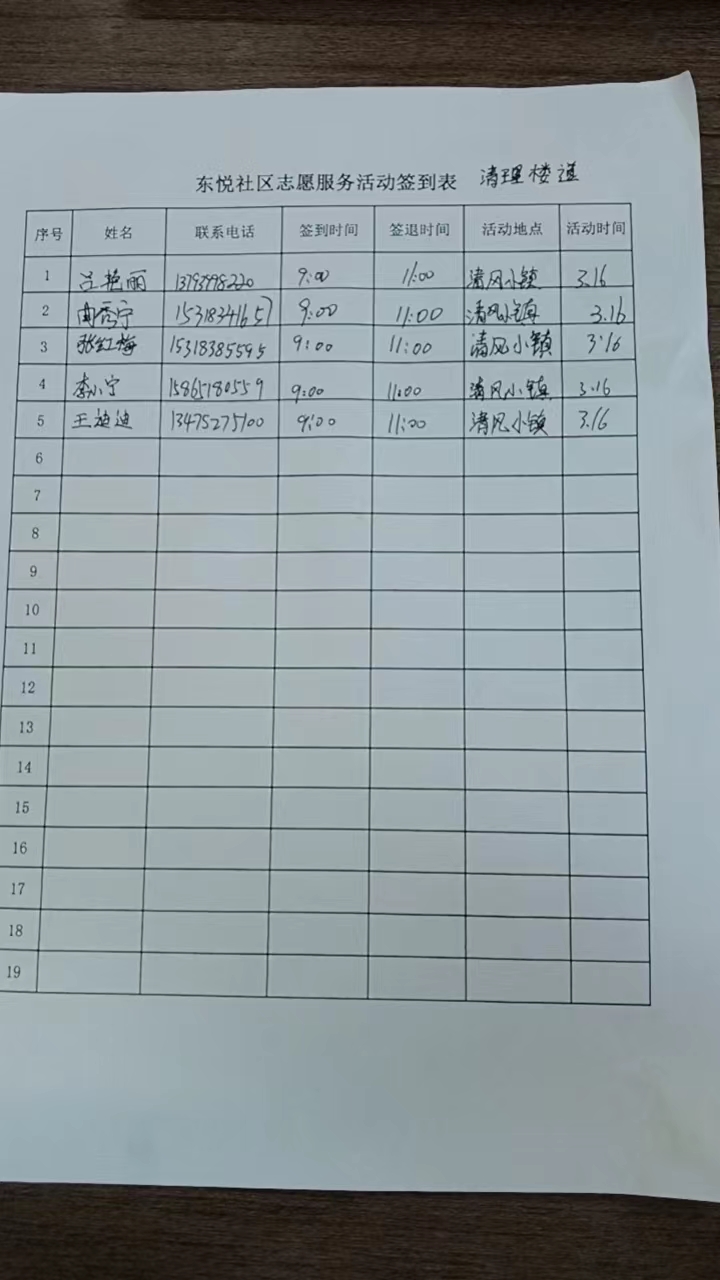 东悦社区志愿服务活动签到表 清理楼道
序号 姓名 联系电话 签到时间 签退时间 活动地点 活动时间
1 吕艳丽 13793998220 9:00 11:00 清风小镇 3.16
2 曲秀宁 15318341657 9:00 11:00 清风小镇 3.16
3 张红梅 15318385595 9:00 11:00 清风小镇 3.16
4 李小宁 15865180559 9:00 11:00 清风小镇 3.16
5 王迪迪 13475275100 9:00 11:00 清风小镇 3.16
6
7
8
9
10
11
12
13
14
15
16
17
18
19